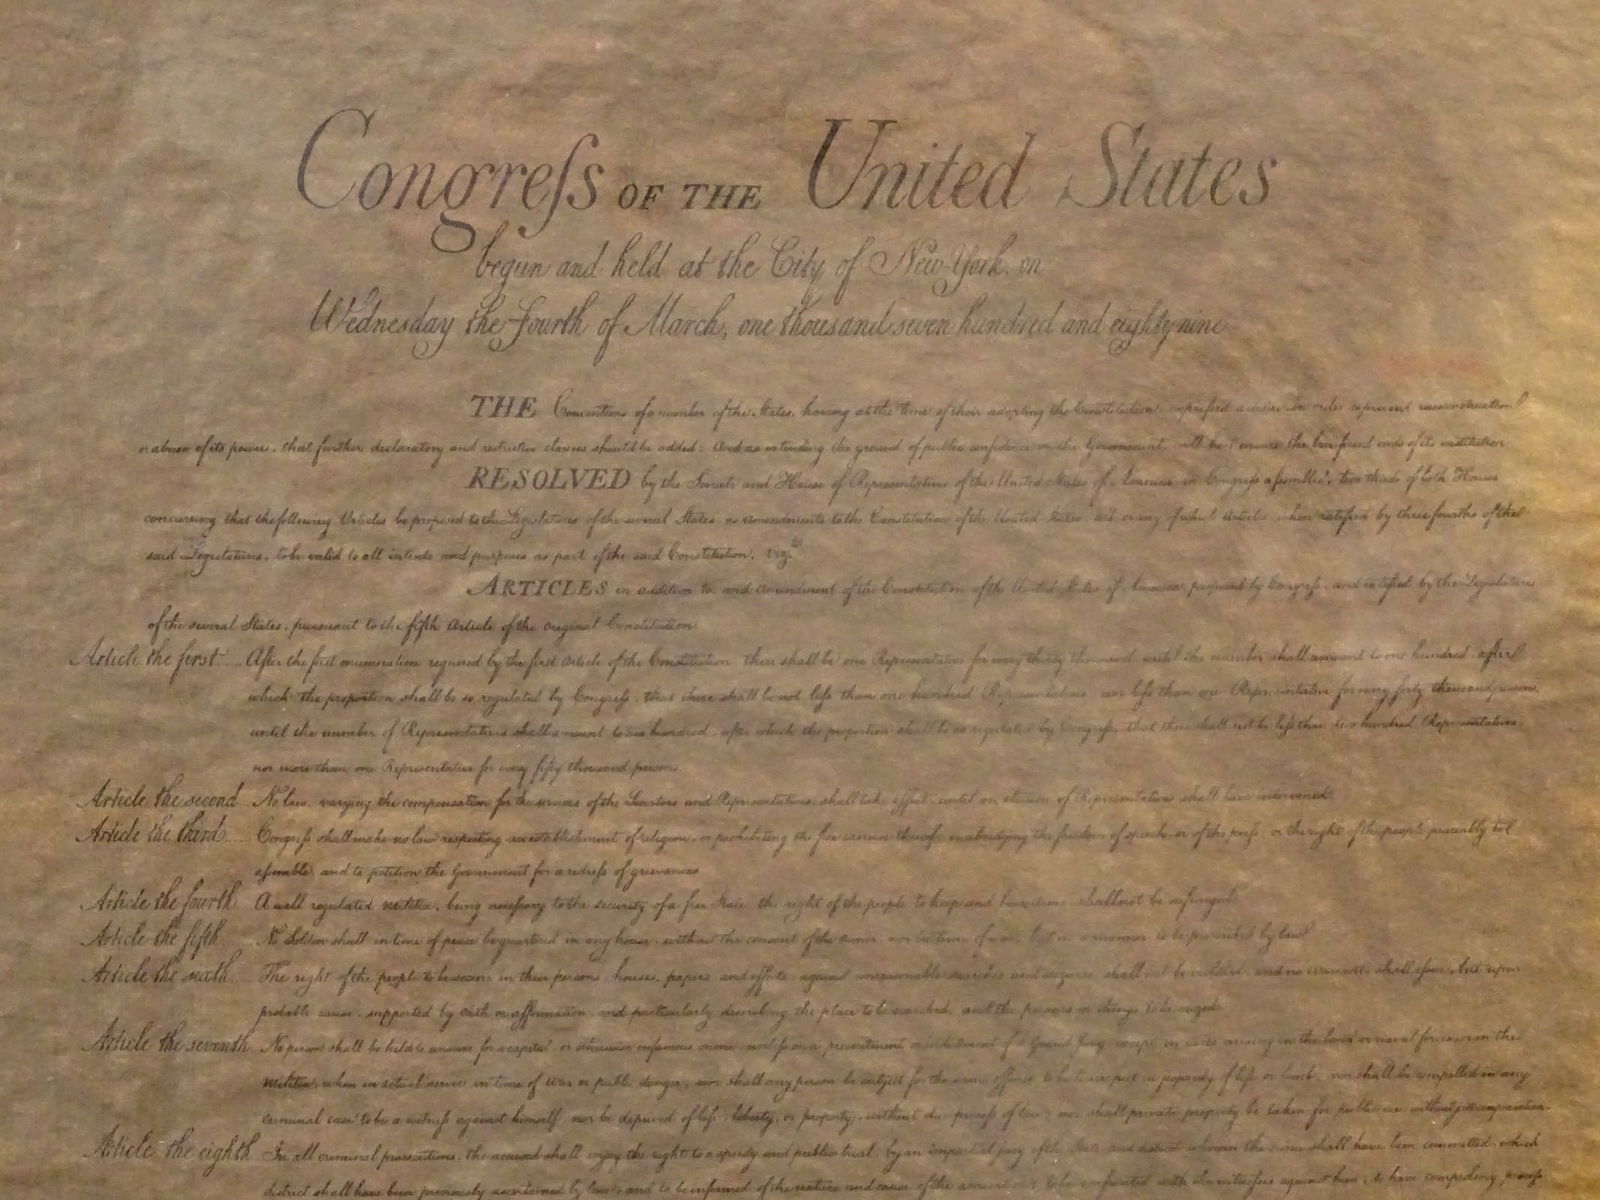 Congress OF THE United States
begun and held at the City of New York, on
Wednesday the Fourth of March, one thousand seven hundred and eighty nine
THE Conventions of a number of the States, having at the time of their adopting the Constitution, expressed a desire in order to prevent misconstruction
or abuse of its powers, that further declaratory and restrictive clauses should be added: And as extending the ground of public confidence in the Government, will best ensure the beneficent ends of its institution
RESOLVED by the Senate and House of Representatives of the United States of America in Congress assembled, two thirds of both Houses
concurring that the following Articles be proposed to the Legislatures of the several States, as amendments to the Constitution of the United States, all or any of which Articles, when ratified by three fourths of the
said Legislatures, to be valid to all intents and purposes as part of the said Constitution, viz.
ARTICLES in addition to, and amendment of the Constitution of the United States of America, proposed by Congress, and ratified by the Legislatures
of the several States, pursuant to the fifth Article of the original Constitution.
Article the first After the first enumeration required by the first Article of the Constitution, there shall be one Representative for every thirty thousand, until the number shall amount to one hundred, after
which the proportion shall be so regulated by Congress, that there shall be not less than one hundred Representatives, nor less than one Representative for every forty thousand persons,
until the number of Representatives shall amount to two hundred, after which the proportion shall be so regulated by Congress, that there shall not be less than two hundred Representatives,
nor more than one Representative for every fifty thousand persons.
Article the second No law, varying the compensation for the services of the Senators and Representatives, shall take effect, until an election of Representatives shall have intervened.
Article the third Congress shall make no law respecting an establishment of religion, or prohibiting the free exercise thereof; or abridging the freedom of speech, or of the press, or the right of the people peaceably to
assemble, and to petition the Government for a redress of grievances
Article the fourth A well regulated militia, being necessary to the security of a free State, the right of the people to keep and bear arms, shall not be infringed.
Article the fifth No Soldier shall, in time of peace be quartered in any house, without the consent of the owner, nor in time of war, but in a manner to be prescribed by law.
Article the sixth The right of the people to be secure in their persons, houses, papers and effects, against unreasonable searches and seizures, shall not be violated, and no warrants shall issue, but upon
probable cause, supported by oath or affirmation, and particularly describing the place to be searched, and the persons or things to be seized.
Article the seventh No person shall be held to answer for a capital, or otherwise infamous crime, unless on a presentment or indictment of a Grand Jury, except in cases arising in the land or naval forces, or in the
militia, when in actual service, in time of War or public danger; nor shall any person be subject for the same offence to be twice put in jeopardy of life or limb, nor shall be compelled in any
criminal case to be a witness against himself, nor be deprived of life, liberty, or property, without due process of law; nor shall private property be taken for public use without just compensation.
Article the eighth In all criminal prosecutions, the accused shall enjoy the right to a speedy and public trial, by an impartial jury of the State and district wherein the crime shall have been committed, which
district shall have been previously ascertained by law, and to be informed of the nature and cause of the accusation; to be confronted with the witnesses against him; to have compulsory process